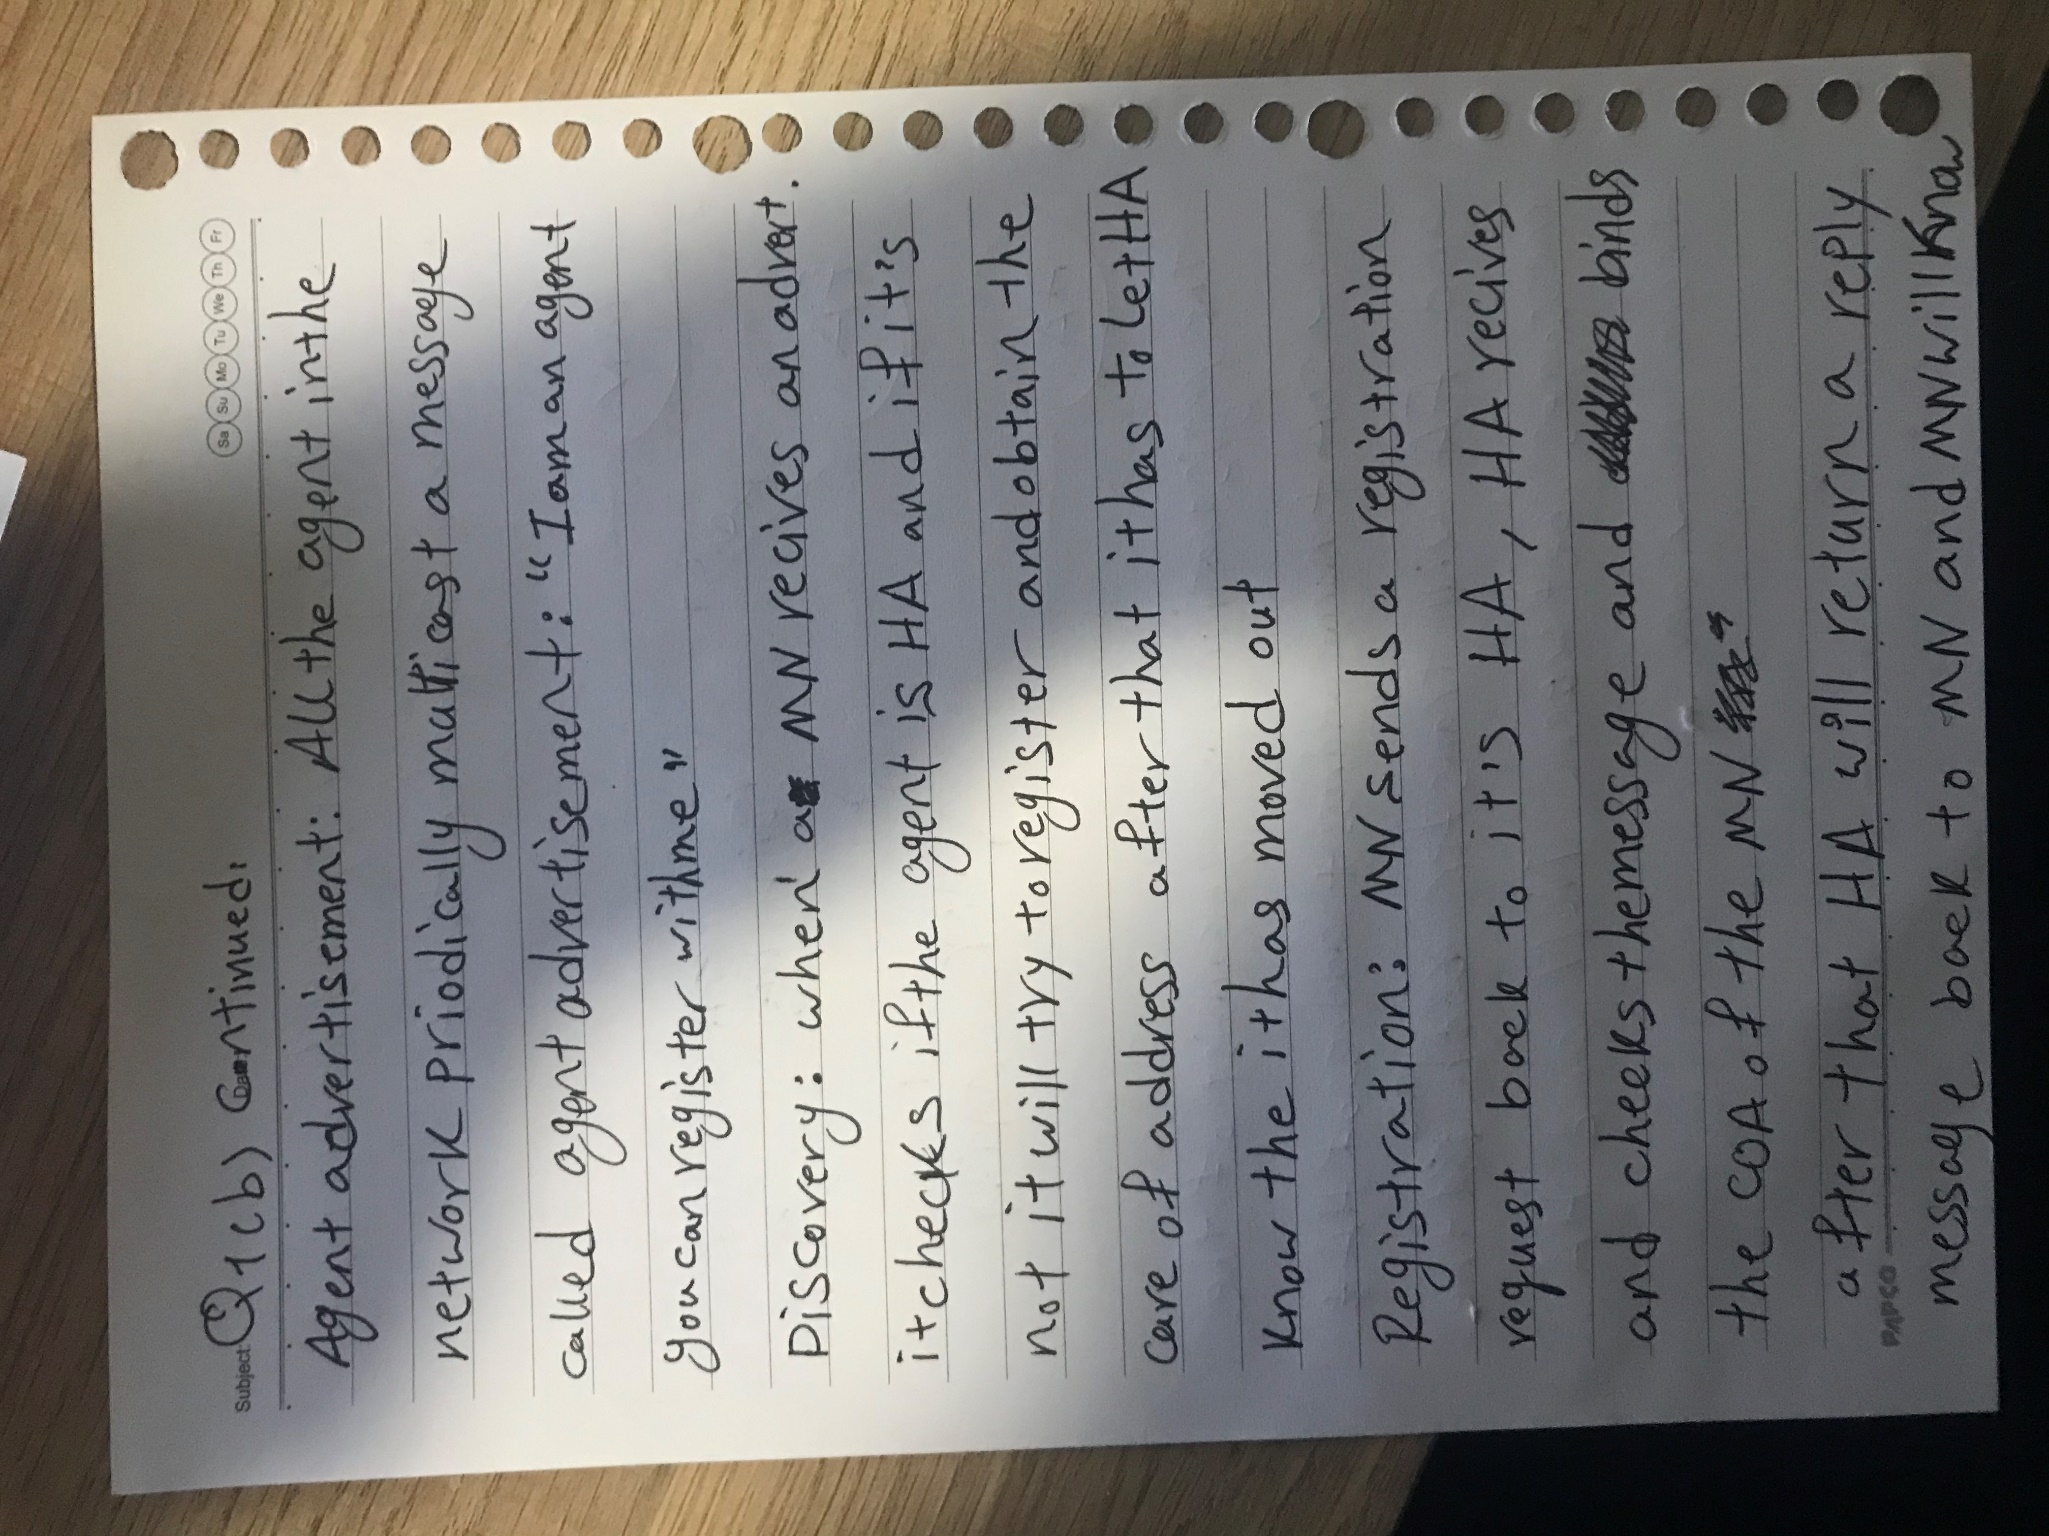 Subject: Q1(b) Continued:
Sa Su Mo Tu We Th Fr
Agent advertisement: All the agent in the
network priodically multicast a message
called agent advertisement: "I am an agent
you can register with me"
Discovery: when a MN recives an advert.
it checks if the agent is HA and if it's
not it will try to register and obtain the
care of address after that it has to let HA
know the it has moved out
Registration: MN sends a registration
request back to it's HA, HA recives
and cheeks the message and binds
the COA of the MN
after that HA will return a reply
PAPCO
message back to MN and MN will know